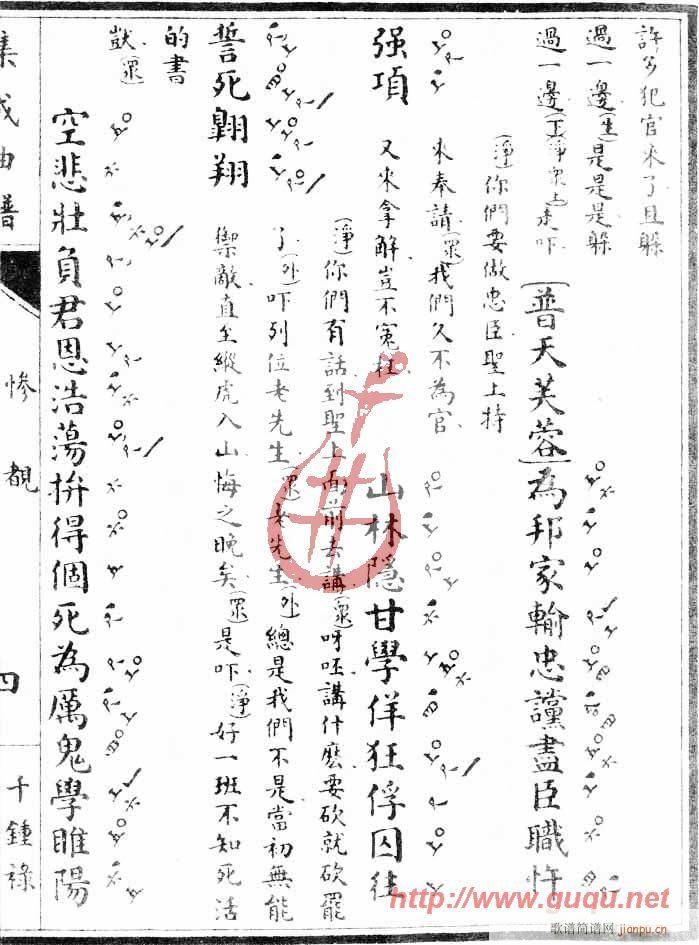 許多犯官來了且躲
過一邊(生)是是是躲
過一邊(丑淨眾上)走吓
[普天芙蓉]為邦家輸忠讜盡臣職忤
(淨)你們要做忠臣聖上特
來奉請(眾)我們久不為官
强項
又來拿解豈不冤枉
山林隱甘學佯狂俘囚往
(淨)你們有話到聖上面前去講(眾)呀呸講什麽要砍就砍罷
了(外)吓列位老先生(眾)老先生(外)總是我們不是當初無能
誓死翺翔
禦敵直至縱虎入山悔之晚矣(眾)是吓(淨)好一班不知死活
的書
獃(眾)
空悲壯負君恩浩蕩拚得個死為厲鬼學睢陽
集成曲譜
慘覩
四
千鍾祿
http://www.guqu.net
歌谱简谱网
jianpu.cn